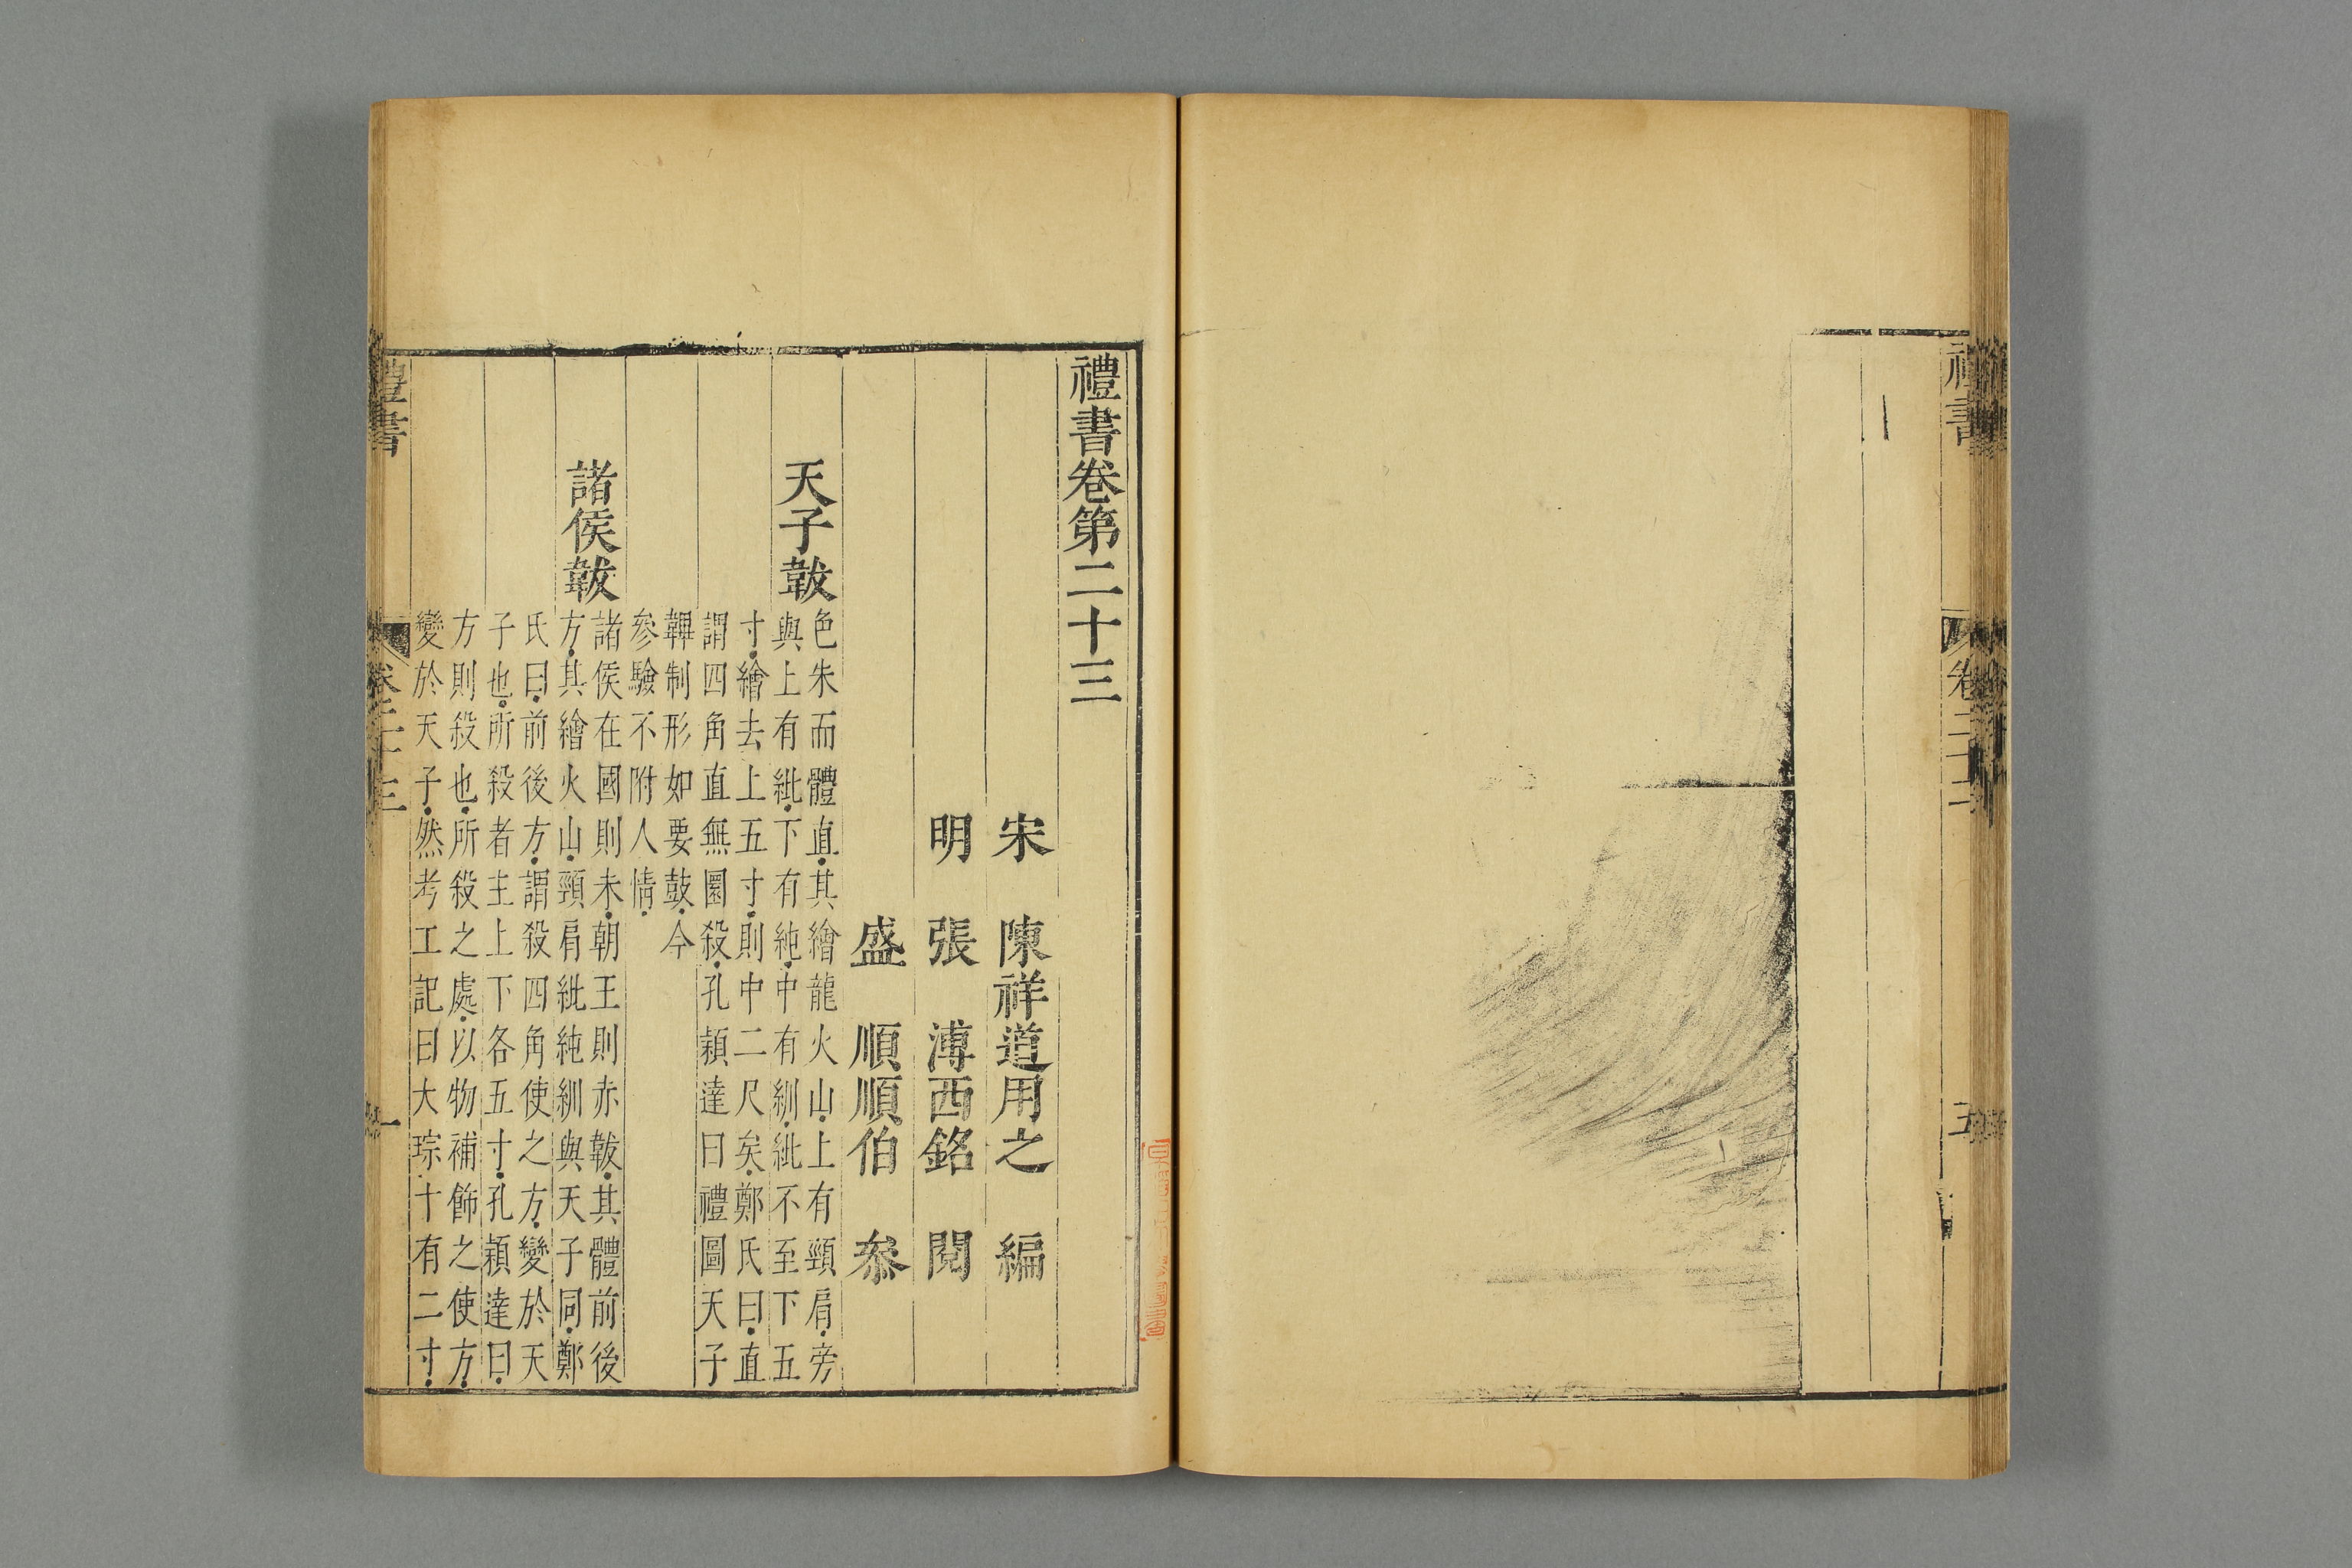 禮書
卷二十二
五
禮書卷第二十三
宋　陳祥道用之　編
明　張　溥西銘　閱
盛　順順伯　叅
天子韍
色朱而體直其繪龍火山上有頸肩旁
與上有紕下有純中有紃紕不至下五
寸繪去上五寸則中二尺矣鄭氏曰直
謂四角直無圜殺孔穎達曰禮圖天子
韠制形如要鼓今
參驗不附人情
諸侯韍
諸侯在國則朱朝王則赤韍其體前後
方其繪火山頸肩紕純紃與天子同鄭
氏曰前後方謂殺四角使之方變於天
子也所殺者主上下各五寸孔穎達曰
方則殺也所殺之處以物補飾之使方
變於天子然考工記曰大琮十有二寸
禮書
卷二十三
一